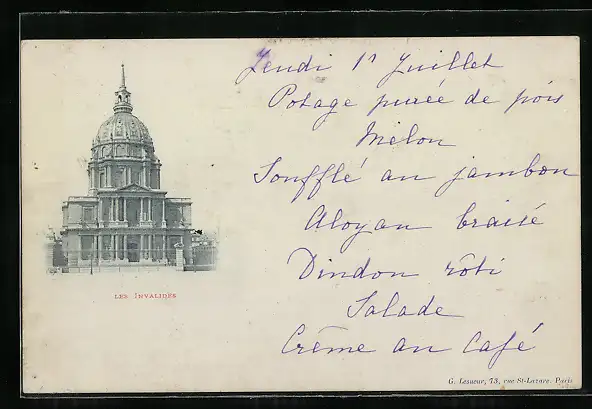 Jeudi 1r Juillet
Potage purée de pois
Melon
Soufflé au jambon
Aloyau braisé
Dindon rôti
Salade
Crème au Café
LES INVALIDES
G. Lesueur, 73, rue St-Lazare. Paris